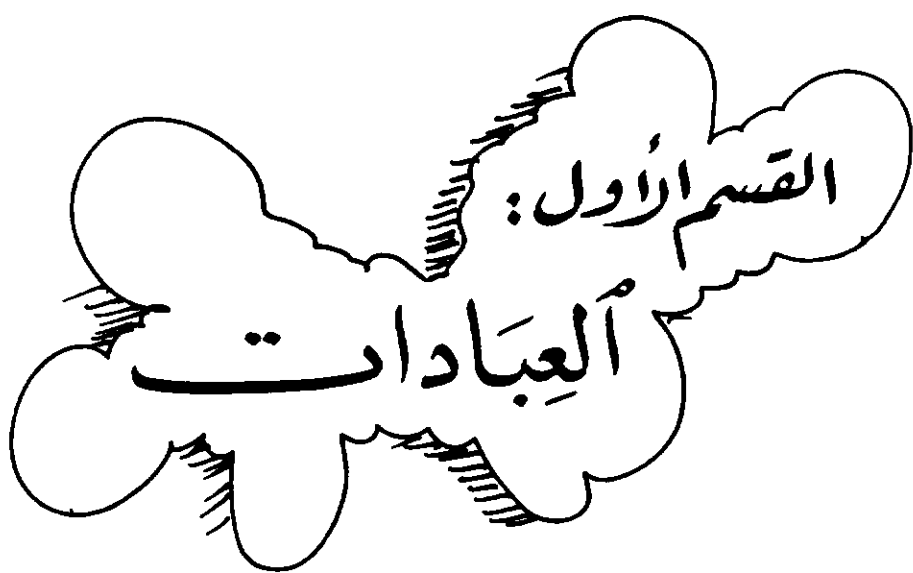 القسم الأول:
ٱلعِبَادات